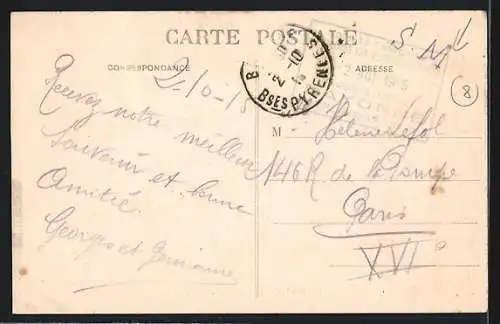 CARTE POSTALE
S M
CORRESPONDANCE
ADRESSE
BSES PYRENEES
2-10
2-10-15
8
Recevez notre meilleur
Souvenir et bonne
Amitié
Georges et Germaine
M Hélène
146 R de la Pompe
Paris
XVI